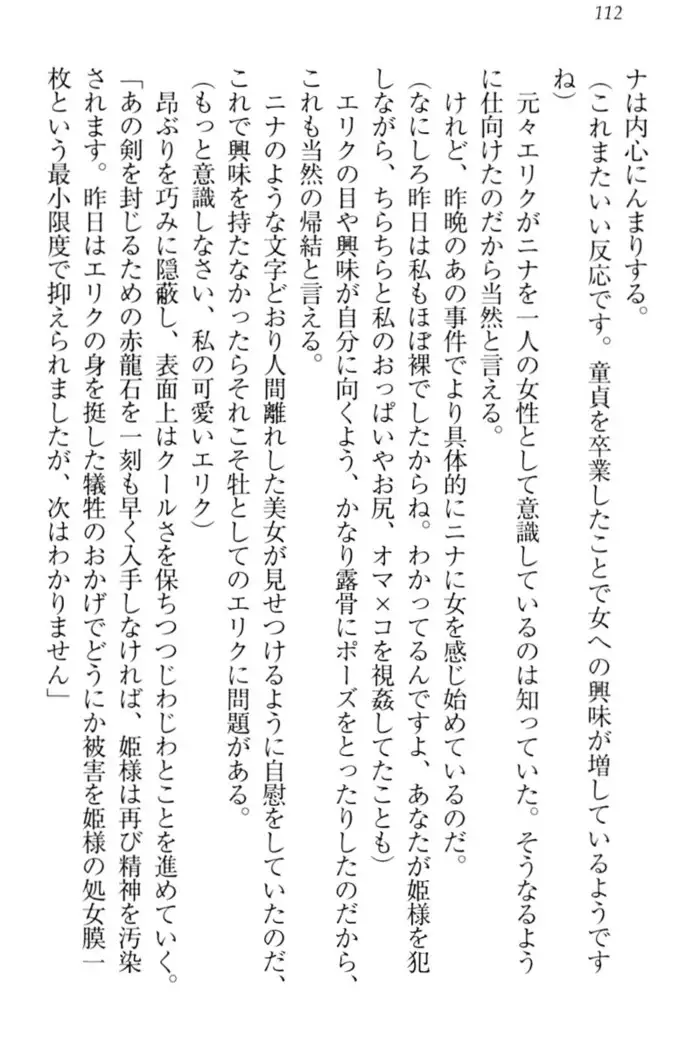 112
ナは内心にんまりする。
（これまたいい反応です。童貞を卒業したことで女への興味が増しているようです
ね）
元々エリクがニナを一人の女性として意識しているのは知っていた。そうなるよう
に仕向けたのだから当然と言える。
けれど、昨晩のあの事件でより具体的にニナに女を感じ始めているのだ。
（なにしろ昨日は私もほぼ裸でしたからね。わかってるんですよ、あなたが姫様を犯
しながら、ちらちらと私のおっぱいやお尻、オマ×コを視姦してたことも）
エリクの目や興味が自分に向くよう、かなり露骨にポーズをとったりしたのだから、
これも当然の帰結と言える。
ニナのような文字どおり人間離れした美女が見せつけるように自慰をしていたのだ、
これで興味を持たなかったらそれこそ牡としてのエリクに問題がある。
（もっと意識しなさい、私の可愛いエリク）
昂ぶりを巧みに隠蔽し、表面上はクールさを保ちつつじわじわとことを進めていく。
「あの剣を封じるための赤龍石を一刻も早く入手しなければ、姫様は再び精神を汚染
されます。昨日はエリクの身を挺した犠牲のおかげでどうにか被害を姫様の処女膜一
枚という最小限度で抑えられましたが、次はわかりません」